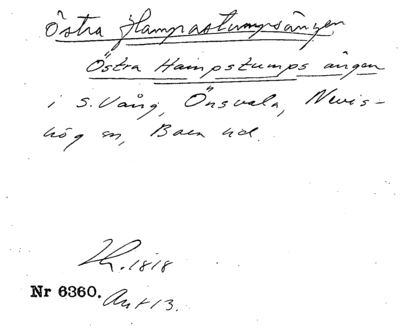 Östra Hampastumpsängen
Östra Hampstumps ängen
i S. Vång, Önsvala, Nevis-
hög sn, Bara hd.
1818
Nr 6360. Akt 13.